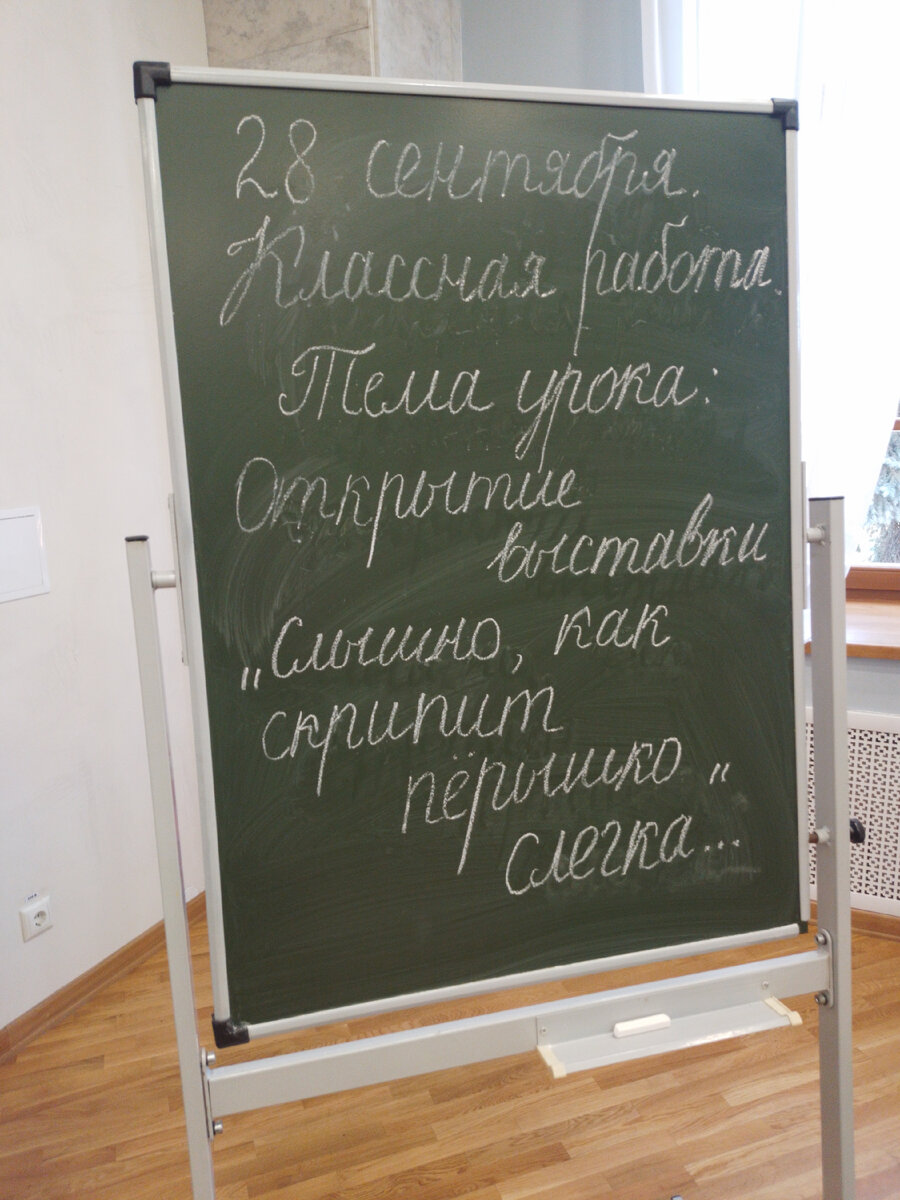 28 сентября.
Классная работа.
Тема урока:
Открытие
выставки
„Слышно, как
скрипит
пёрышко
слегка..."